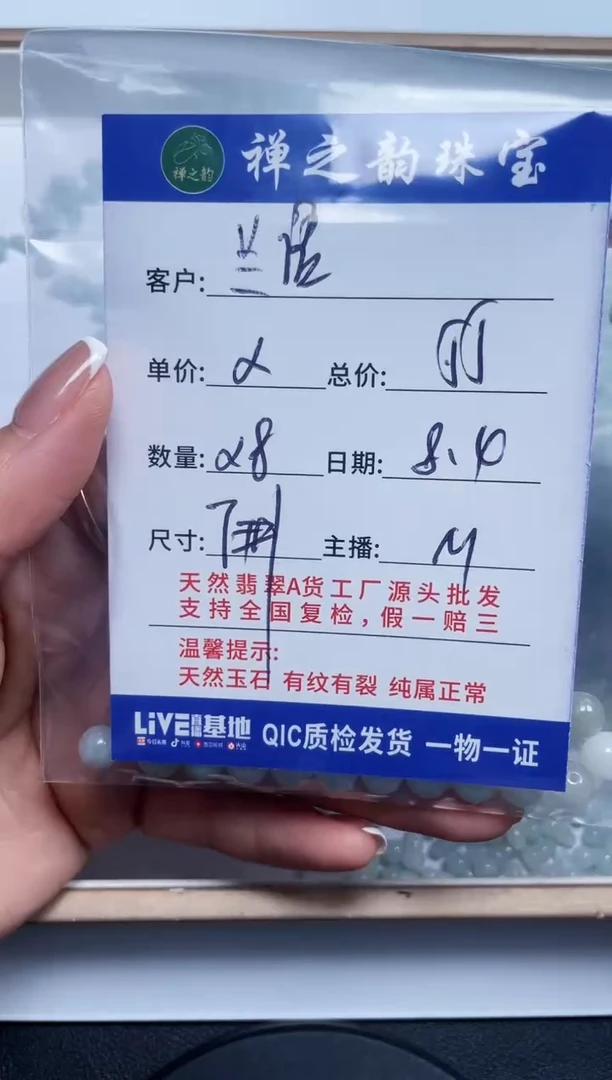 禅之韵
禅之韵珠宝
客户:
单价: 总价:
数量: 28 日期: 8.4
尺寸: 主播: M
天然翡翠A货工厂源头批发
支持全国复检,假一赔三
温馨提示:
天然玉石 有纹有裂 纯属正常
LiVE直播基地 QIC质检发货 一物一证